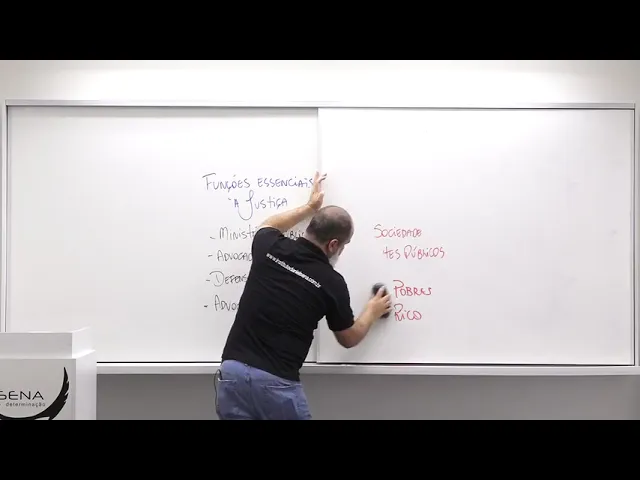 FUNÇÕES ESSENCIAIS
À JUSTIÇA
- MINISTÉ
- ADVOCAC
- DEFENS
- ADVO
SOCIEDADE
PÚBLICOS
POBRES
RICO
SENA
determinação